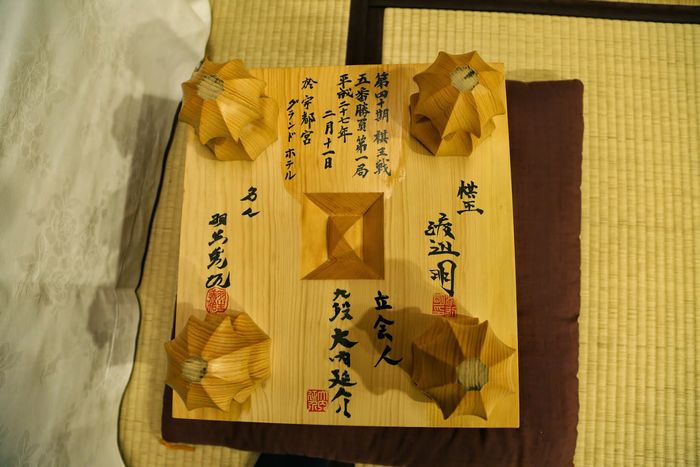 第四十期 棋王戦
五番勝負第一局
平成二十七年
二月十一日
於 宇都宮
グランドホテル
棋王
渡辺明
立会人
九段 大内延介
名人
羽生善治